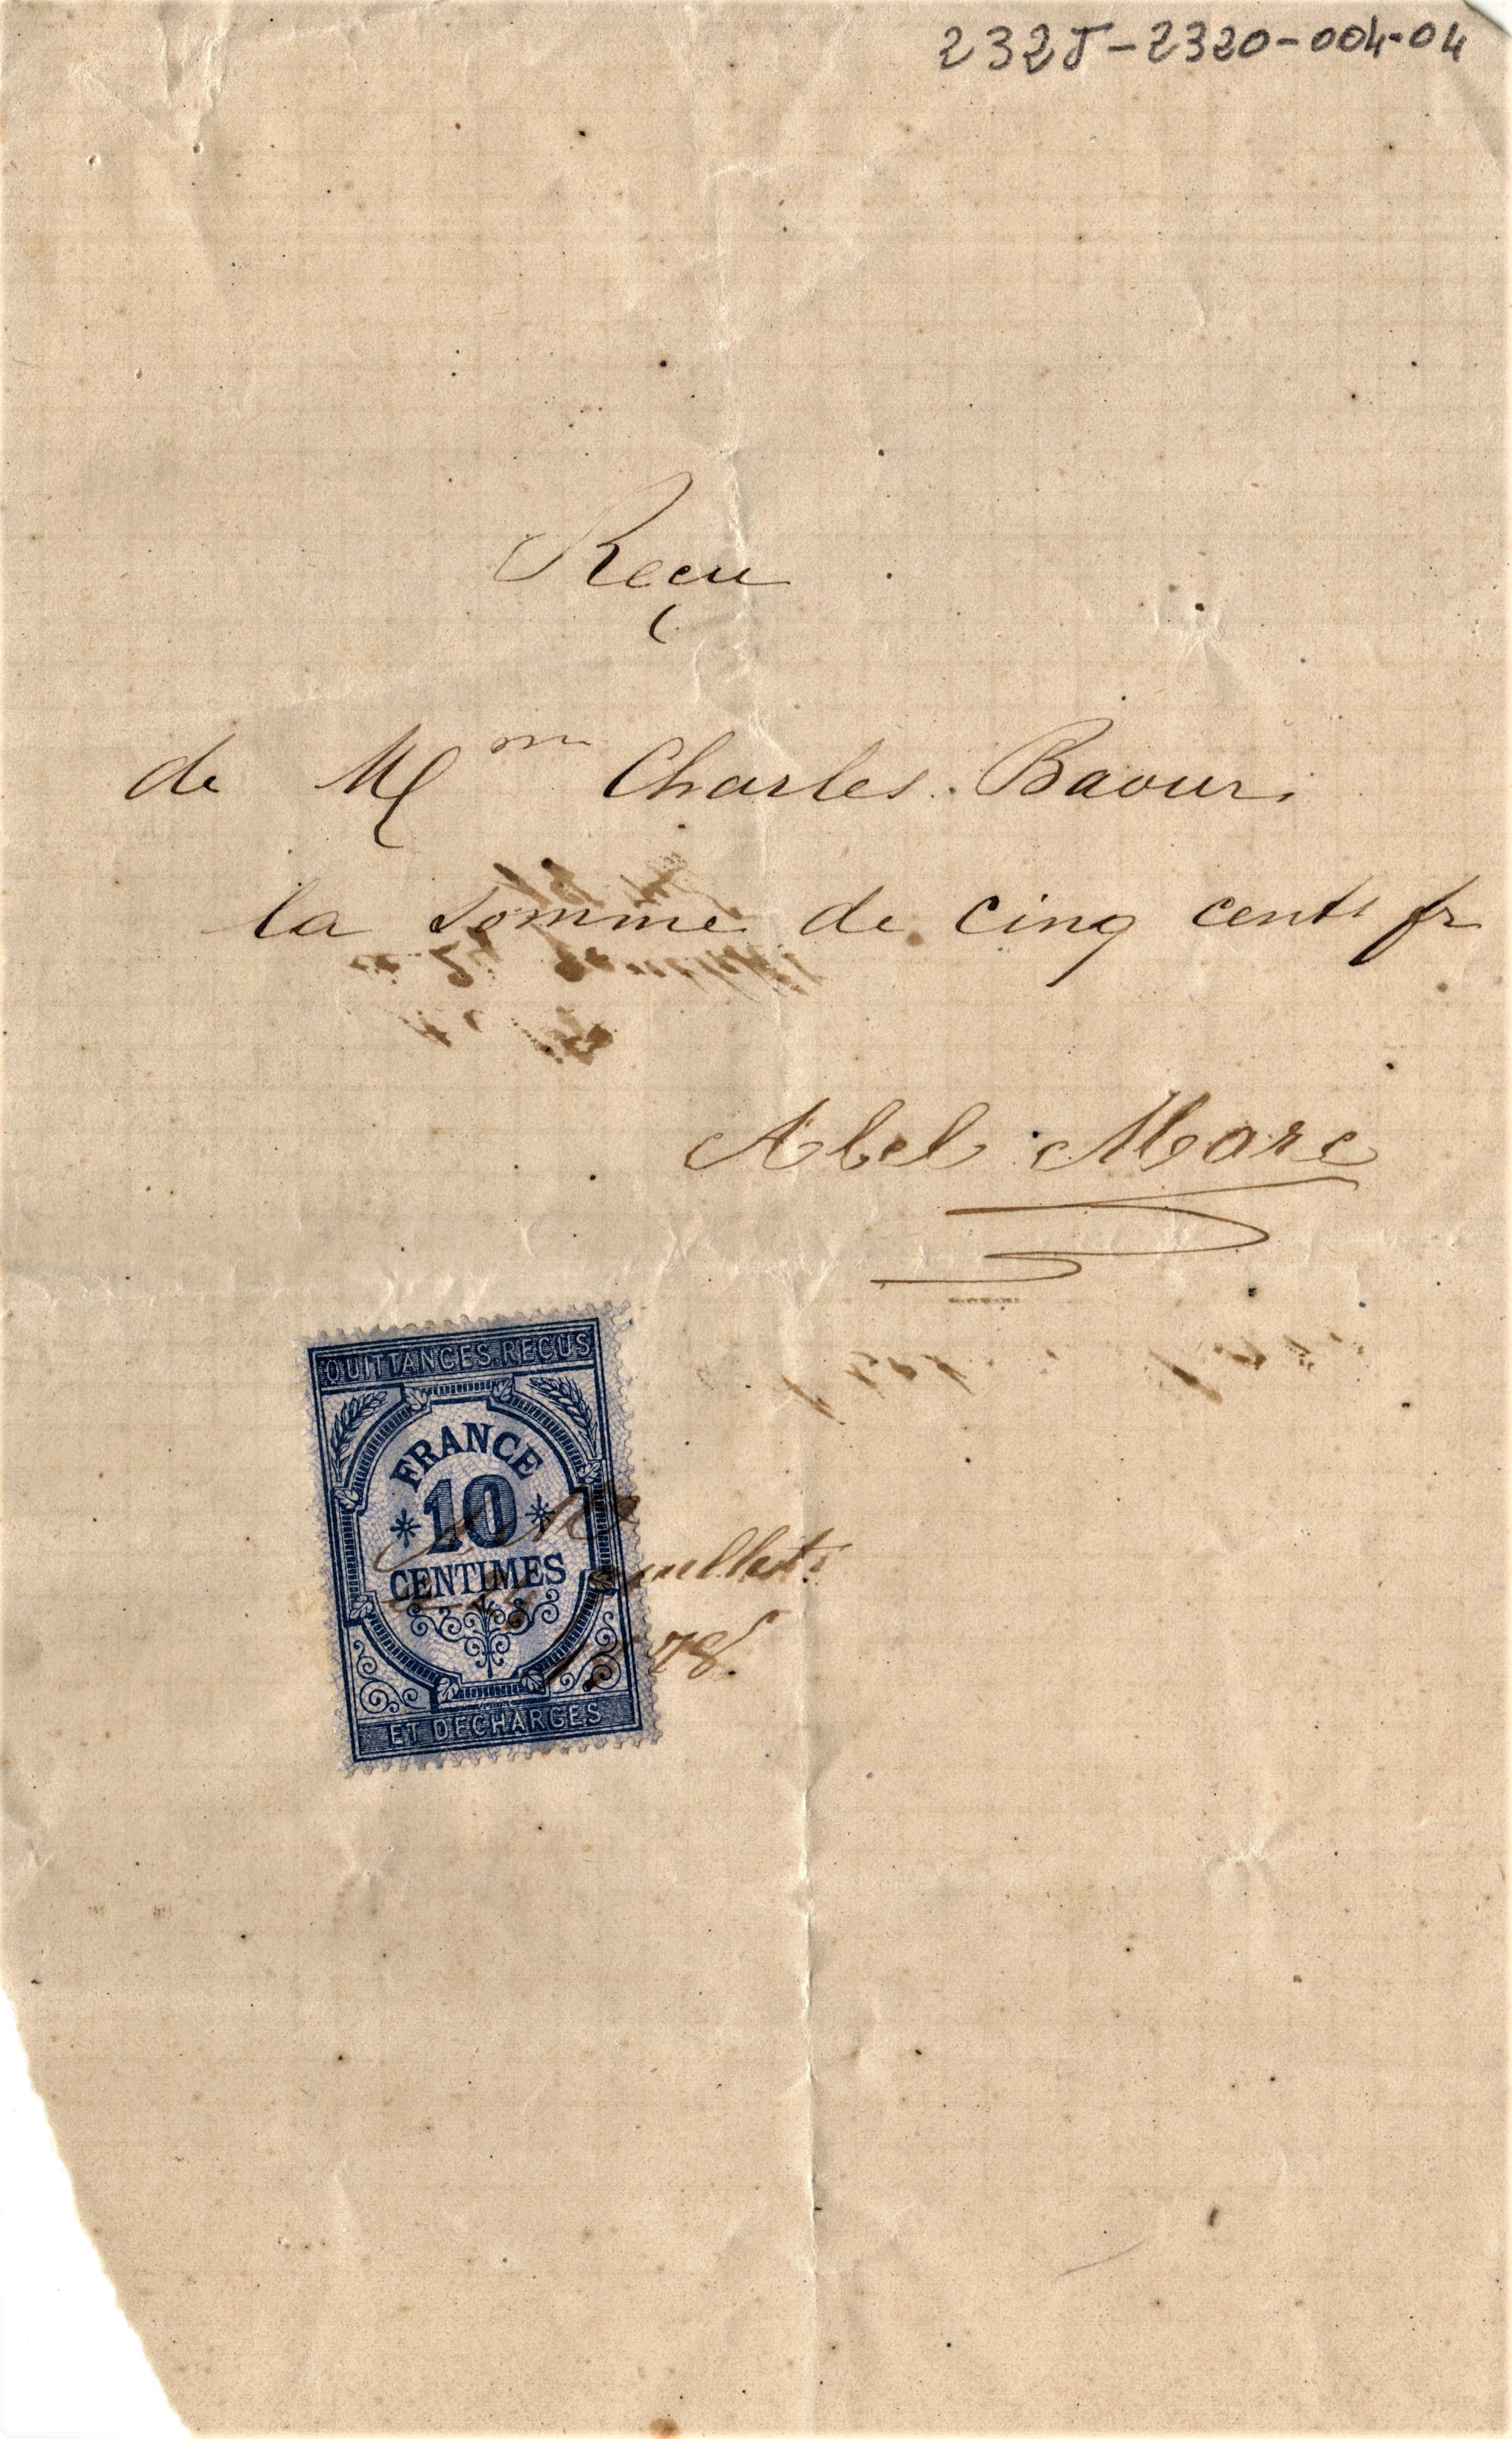 232J-2320-004-04
Reçu
de Mme Charles Baour
la somme de cinq cents fr
Abel Marc
QUITTANCES.REÇUS
FRANCE
10
CENTIMES
A M
juillet
1878.
ET DÉCHARGES